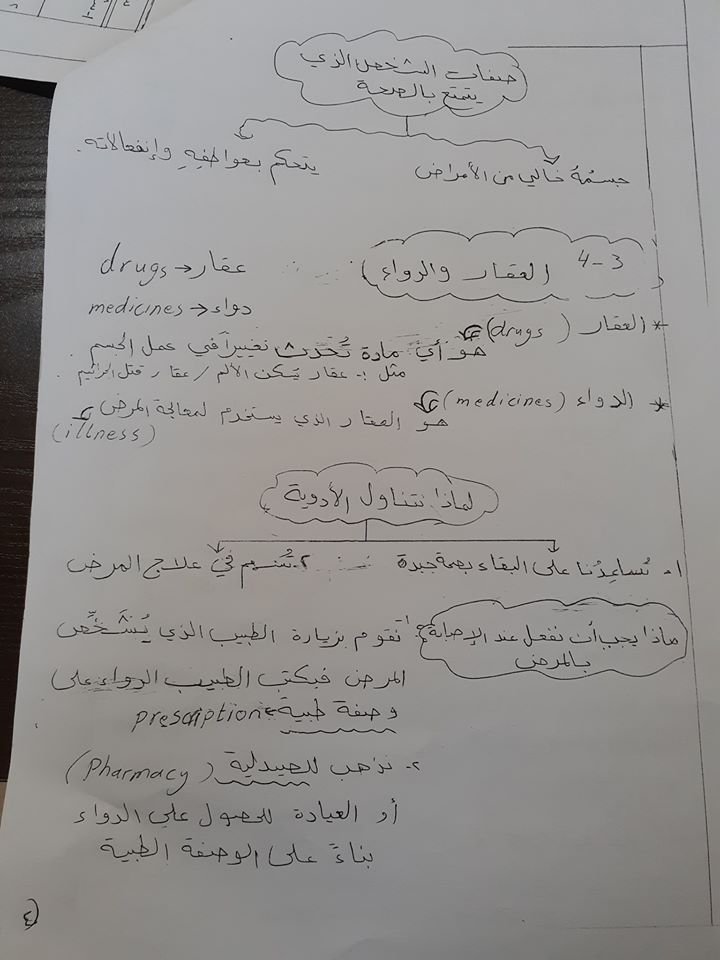 صفات الشخص الذي
يتمتع بالصحة
جسمُهُ خالي من الأمراض
يتحكم بعواطفِهِ وإنفعالاته.
4-3 العقار والدواء
عقار → drugs
دواء → medicines
* العقار (drugs)
هو أي مادة تُحدث تغييراً في عمل الجسم.
مثل :- عقار يسكن الألم / عقار قتل الجراثيم.
* الدواء (medicines)
هو العقار الذي يستخدم لمعالجة المرض
(illness)
لماذا نتناول الأدوية
١- تُساعِدُنا على البقاء بصحة جيدة
٢- تُسهم في علاج المرض
ماذا يجب أن نفعل عند الإصابة
بالمرض
١- نقوم بزيارة الطبيب الذي يُشَخِّص
المرض فيكتب الطبيب الدواء على
وصفة طبية prescription
٢- نذهب للصيدلية (Pharmacy)
أو العيادة للحصول على الدواء
بناءً على الوصفة الطبية
٤